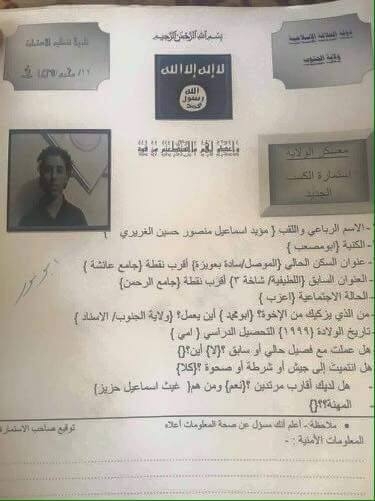 بسم الله الرحمن الرحيم
دولة الخلافة الإسلامية
ولاية الجنوب
لا إله إلا الله
الله
رسول
محمد
وأعدوا لهم ما استطعتم من قوة
معسكر الولاية
استمارة الكسب
الجديد
- الاسم الرباعي واللقب { مؤيد اسماعيل منصور حسين الغريري }
- الكنية {ابومصعب}
- عنوان السكن الحالي {الموصل/سادة بعويزة} أقرب نقطة {جامع عائشة }
- العنوان السابق {اللطيفية/ شاخة ٣} أقرب نقطة {جامع الرحمن}
- الحالة الاجتماعية {اعزب }
- من الذي يزكيك من الإخوة؟ {ابومحمد } أين يعمل؟ {ولاية الجنوب/ الاسناد }
- تاريخ الولادة {١٩٩٩} التحصيل الدراسي { امي }
- هل عملت مع فصيل حالي أو سابق ؟{لا} أين؟{}
هل انتميت إلى جيش أو شرطة او صحوة ؟{كلا}
- هل لديك أقارب مرتدين ؟{نعم} ومن هم{ غيث اسماعيل حريز}
- المهنة؟؟{}
• ملاحظة.. أعلم أنك مسؤل عن صحة المعلومات اعلاه
توقيع صاحب الاستمارة
المعلومات الأمنية : -